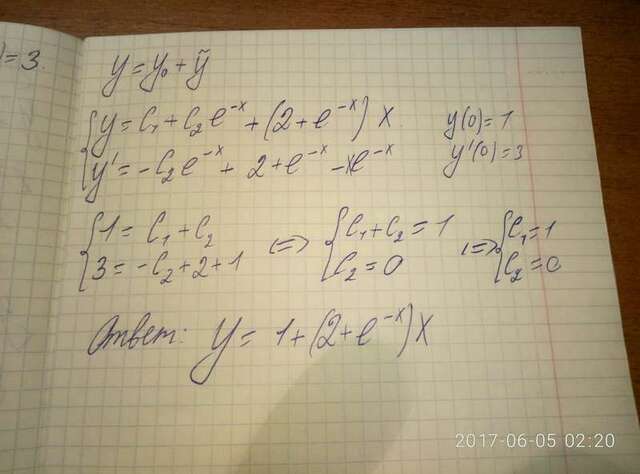 )=3.
y = y₀ + ỹ
{ y = C₁ + C₂e^{-x} + (2 + e^{-x}) x. y(0) = 1
{ y' = -C₂e^{-x} + 2 + e^{-x} - xe^{-x} y'(0) = 3
{ 1 = C₁ + C₂ <=> { C₁ + C₂ = 1 <=> { C₁ = 1
{ 3 = -C₂ + 2 + 1 { C₂ = 0 { C₂ = 0
Ответ: y = 1 + (2 + e^{-x}) x
2017-06-05 02:20